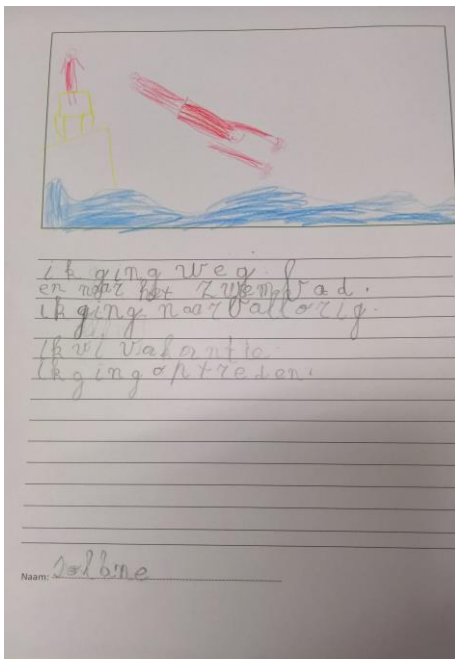 ik ging weg.
en naar het zwembad.
ik ging naar Vallorig.
ik vi vakantie
ik ging optreden.
Naam: